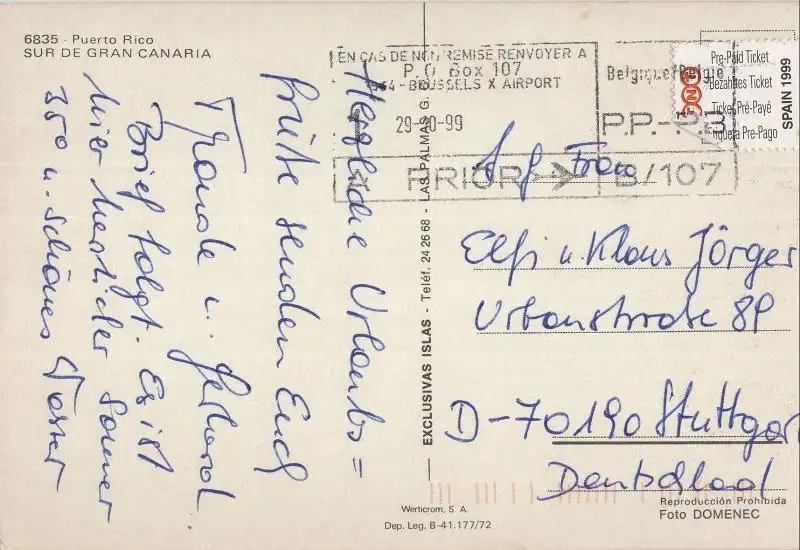 6835 - Puerto Rico
SUR DE GRAN CANARIA
Herzliche Urlaubs=
grüße senden Euch
Traudl u. Gerhard
Brief folgt. Es ist
hier herrlicher Sommer
35° u. schönes Wasser
EXCLUSIVAS ISLAS - Teléf. 24 26 68 - LAS PALMAS G.
EN CAS DE NON REMISE RENVOYER A
P.O Box 107
- BRUSSELS X AIRPORT
29-10-99
PRIOR
Belgique-België
P.P.-P.B
B/107
TNT
Pre-Paid Ticket
Bezahltes Ticket
Ticket Pré-Payé
Etiqueta Pre-Pago
SPAIN 1999
Frau
Elfi u. Klaus Jörger
Urbanstrasse 89
D-70190 Stuttgart
Deutschland
Reproducción Prohibida
Foto DOMENEC
Werticrom, S. A.
Dep. Leg. B-41.177/72